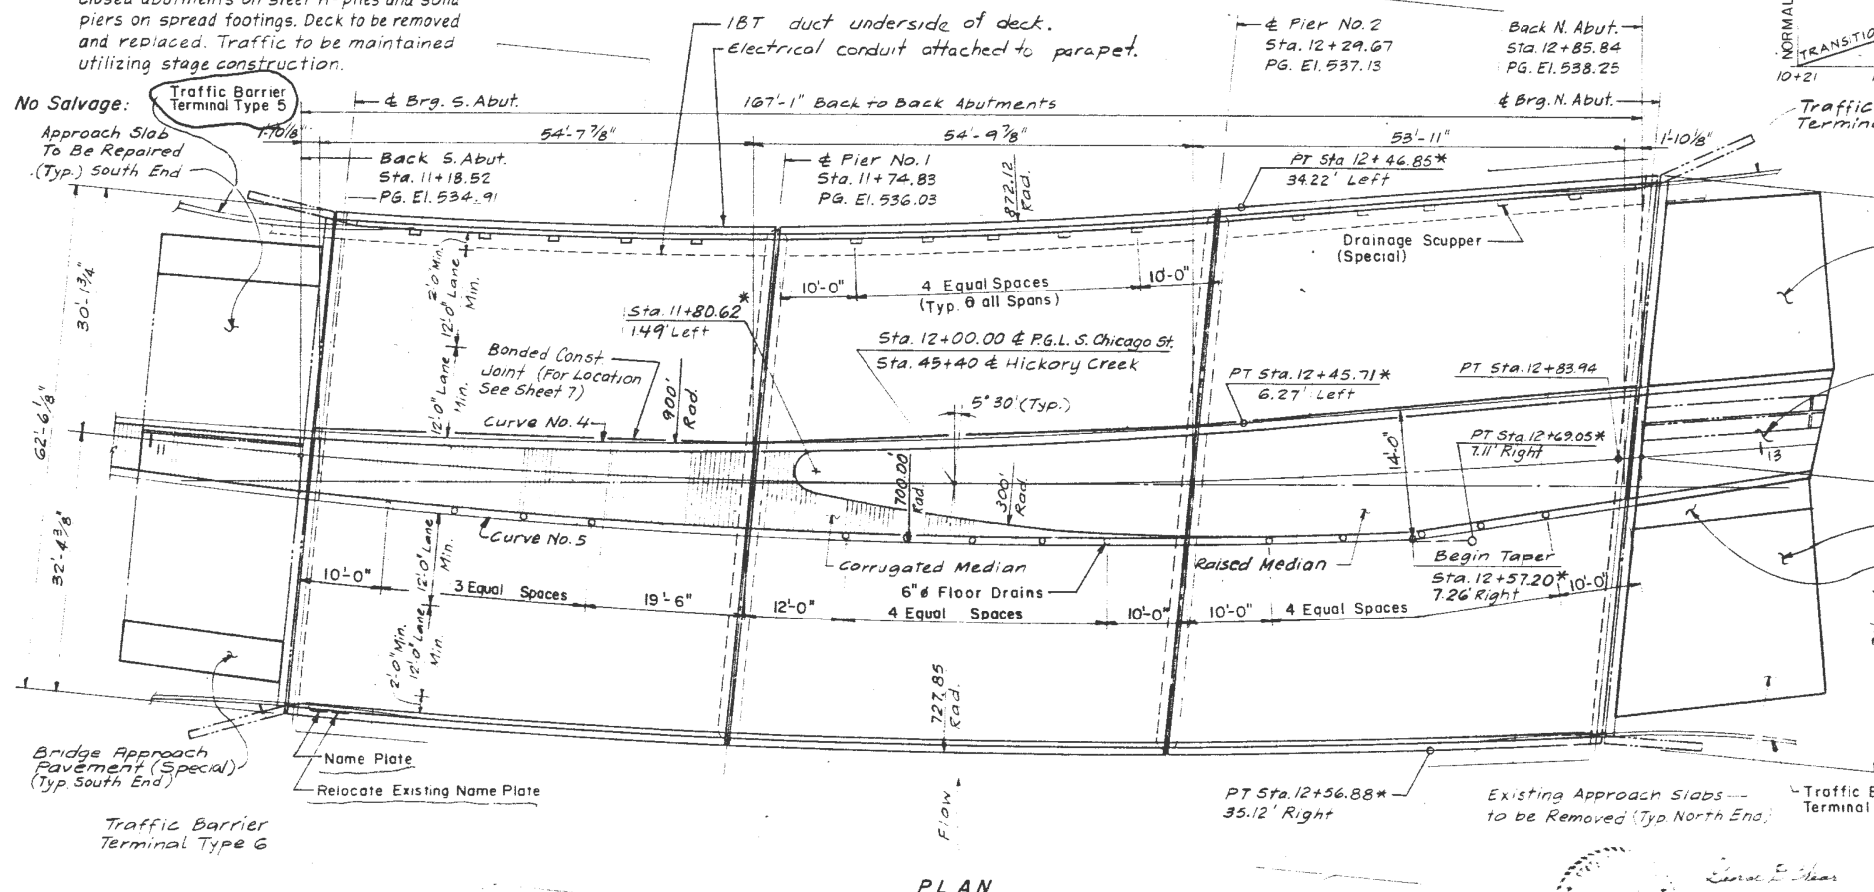 piers on spread footings. Deck to be removed
and replaced. Traffic to be maintained
utilizing stage construction.
No Salvage:
Traffic Barrier
Terminal Type 5
Approach Slab
To Be Repaired
(Typ.) South End
IBT duct underside of deck.
Electrical conduit attached to parapet.
₵ Pier No. 2
Sta. 12+29.67
PG. El. 537.13
Back N. Abut.
Sta. 12+85.84
PG. El. 538.25
NORMAL
10+21
Traffic
₵ Brg. S. Abut.
167'-1" Back to Back Abutments
₵ Brg. N. Abut.
1'-10⅛"
54'-7⅞"
54'-9⅞"
53'-11"
1'-10⅛"
Back S. Abut.
Sta. 11+18.52
PG. El. 534.91
₵ Pier No. 1
Sta. 11+74.83
PG. El. 536.03
872.12
Rad.
PT Sta 12+46.85*
34.22' Left
Drainage Scupper
(Special)
30'-1¾"
62'-6⅛"
32'-4⅜"
2'-0" Min.
12'-0" Lane
Min.
12'-0" Lane
Min.
10'-0"
4 Equal Spaces
(Typ. @ all Spans)
10'-0"
Sta. 11+80.62*
1.49' Left
Bonded Const
Joint (For Location
See Sheet 7)
900'
Rad.
Sta. 12+00.00 ₵ P.G.L. S. Chicago St.
Sta. 45+40 ₵ Hickory Creek
5°30' (Typ.)
PT Sta. 12+45.71*
6.27' Left
PT Sta. 12+83.94
Curve No. 4
11
700.00'
Rad.
300'
Rad.
14'-0"
PT Sta. 12+69.05*
7.11' Right
13
Curve No. 5
Corrugated Median
6"ø Floor Drains
Raised Median
Begin Taper
Sta. 12+57.20*
7.26' Right
10'-0"
12'-0" Lane
Min.
10'-0"
3 Equal Spaces
19'-6"
12'-0"
4 Equal Spaces
10'-0"
10'-0"
4 Equal Spaces
2'-0" Min.
12'-0" Lane
Min.
727.85
Rad.
Bridge Approach
Pavement (Special)
(Typ. South End)
Name Plate
Relocate Existing Name Plate
Traffic Barrier
Terminal Type 6
Flow
PT Sta. 12+56.88*
35.12' Right
Existing Approach Slabs
to be Removed (Typ. North End)
Traffic
Terminal
PLAN